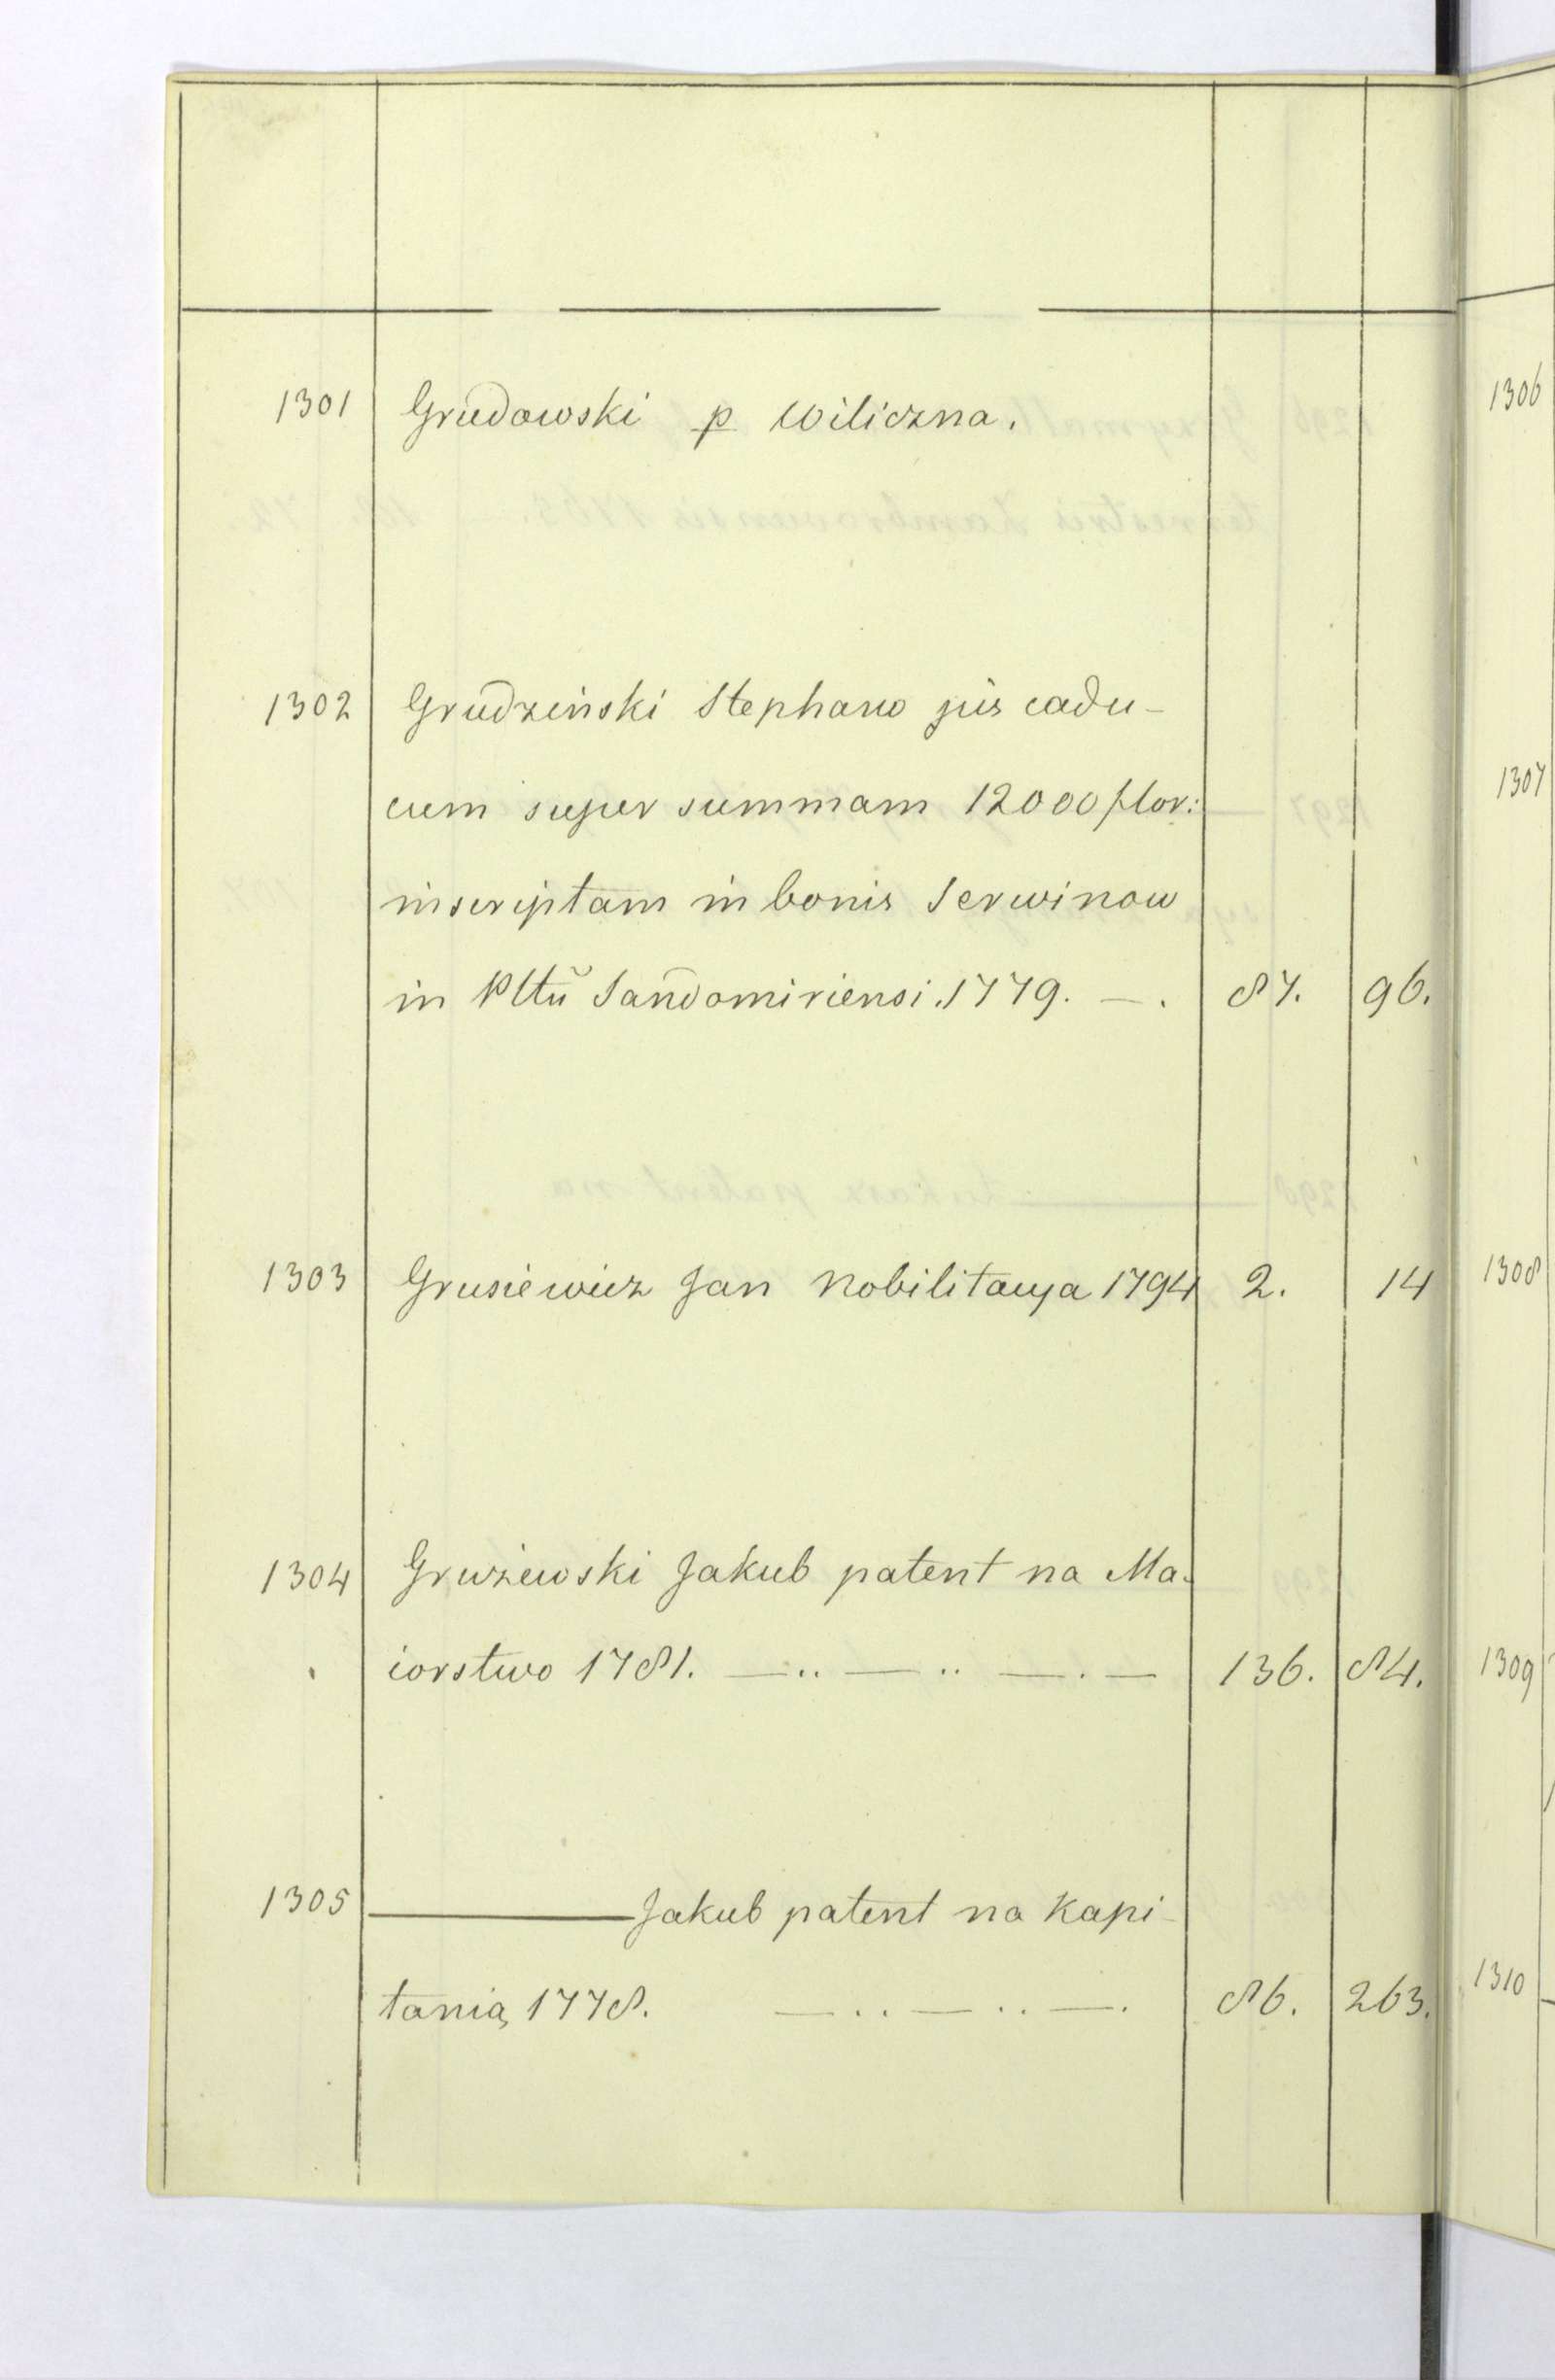 1301 Grudowski p Wiliczna.
1302 Grudziński Stephano jus cadu-
cum super summam 12000 flor:
inscriptam in bonis Serwinow
in Plltŭ Sandomiriensi. 1779. — . 87. 96.
1303 Grusiewicz Jan Nobilitacya 1794 2. 14
1304 Grużewski Jakub patent na Ma-
iorstwo 1781. — .. — .. — . — 136. 84.
1305 ——— Jakub patent na Kapi
tanią 1778. — .. — .. — . 86. 263.
1306
1307
1308
1309
1310